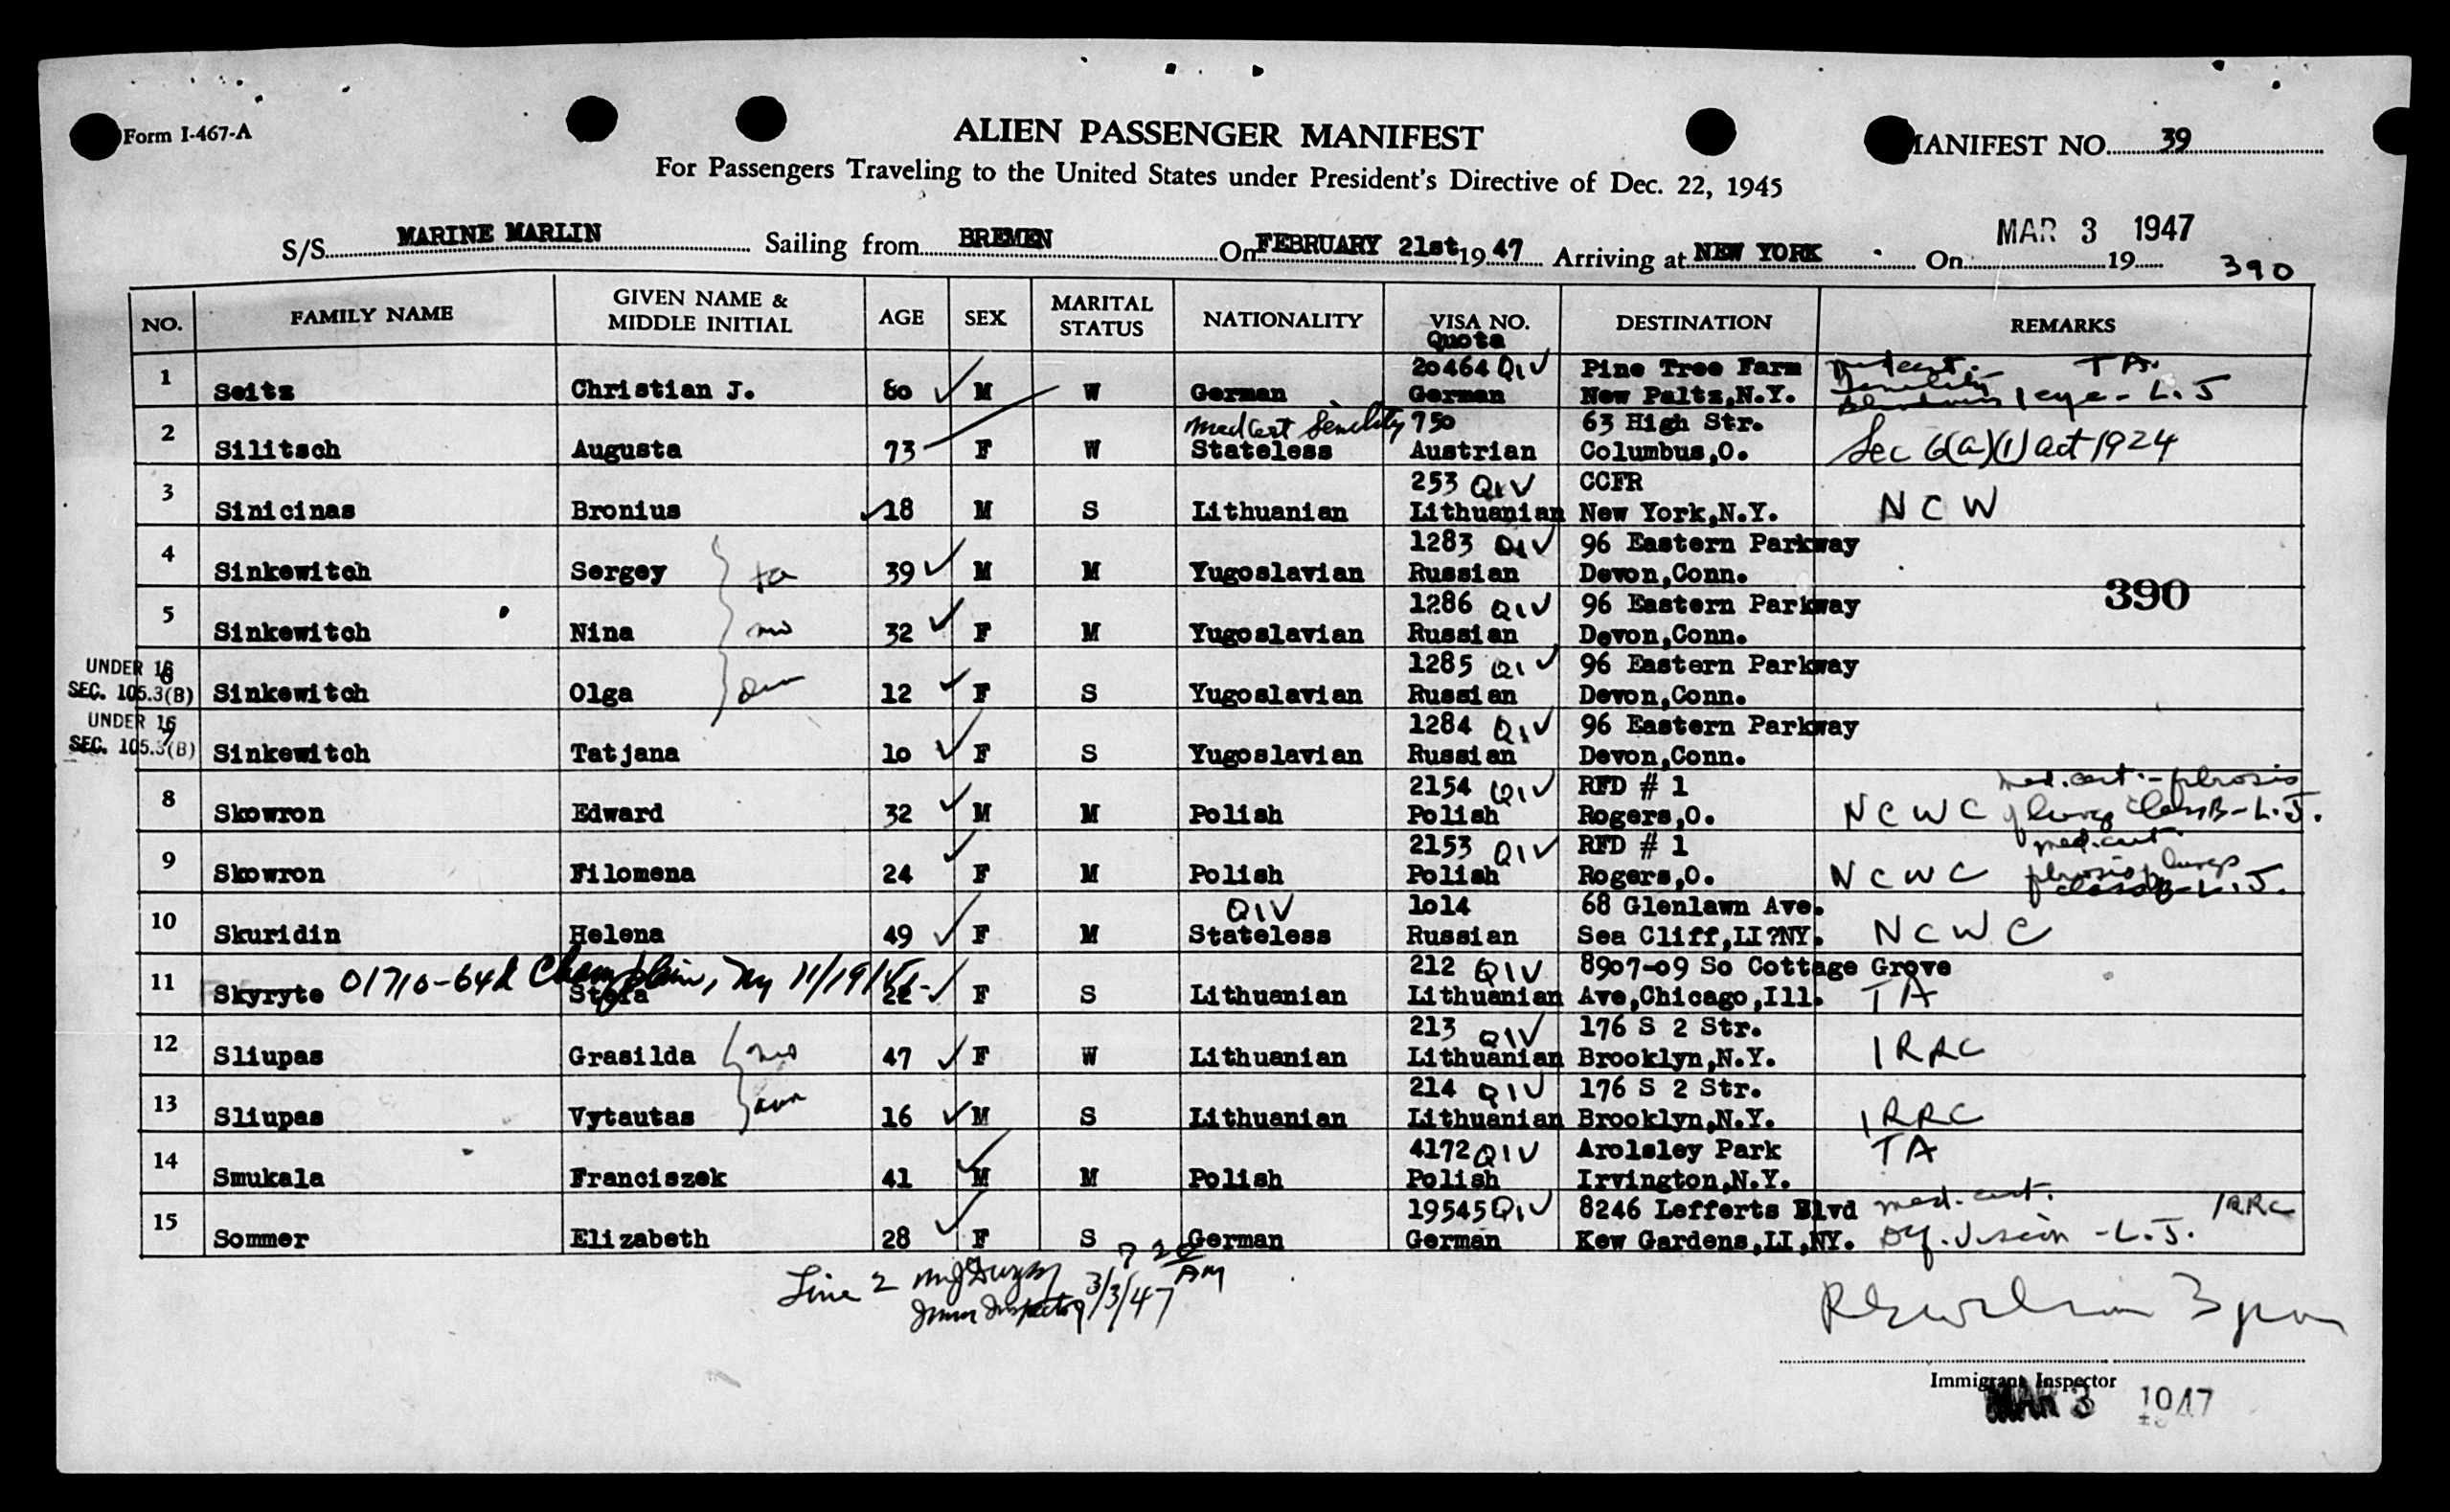 Form I-467-A
ALIEN PASSENGER MANIFEST
MANIFEST NO. 39
For Passengers Traveling to the United States under President's Directive of Dec. 22, 1945
MAR 3 1947
S/S MARINE MARLIN Sailing from BREMEN On FEBRUARY 21st 19 47 Arriving at NEW YORK On 19
390
NO. FAMILY NAME GIVEN NAME & MIDDLE INITIAL AGE SEX MARITAL STATUS NATIONALITY VISA NO. Quota DESTINATION REMARKS
1 Seitz Christian J. 80 M W German 20464 QIV German Pine Tree Farm New Paltz,N.Y. med cert. Senility Blindness 1 eye - L.J TA.
2 Silitsch Augusta 73 F W med cert Senility Stateless 750 Austrian 63 High Str. Columbus,O. Sec 6(a)(1) act 1924
3 Sinicinas Bronius 18 M S Lithuanian 253 QIV Lithuanian CCFR New York,N.Y. NCW
4 Sinkewitch Sergey fa 39 M M Yugoslavian 1283 QIV Russian 96 Eastern Parkway Devon,Conn.
390
5 Sinkewitch Nina mo 32 F M Yugoslavian 1286 QIV Russian 96 Eastern Parkway Devon,Conn.
UNDER 16 SEC. 105.3(B)
6 Sinkewitch Olga dau 12 F S Yugoslavian 1285 QIV Russian 96 Eastern Parkway Devon,Conn.
UNDER 16 SEC. 105.3(B)
7 Sinkewitch Tatjana 10 F S Yugoslavian 1284 QIV Russian 96 Eastern Parkway Devon,Conn.
8 Skowron Edward 32 M M Polish 2154 QIV Polish RFD # 1 Rogers,O. NCWC med. cert. - fibrosis lung class B - L.J.
9 Skowron Filomena 24 F M Polish 2153 QIV Polish RFD # 1 Rogers,O. NCWC med. cert fibrosis lungs class B - L.J.
10 Skuridin Helena 49 F M QIV Stateless 1014 Russian 68 Glenlawn Ave. Sea Cliff,LI?NY. NCWC
11 Skyryte 01710-642 Champlain, NY 11/19/51 Stefa 22 F S Lithuanian 212 QIV Lithuanian 8907-09 So Cottage Grove Ave,Chicago,Ill. TA
12 Sliupas Grasilda mo 47 F W Lithuanian 213 QIV Lithuanian 176 S 2 Str. Brooklyn,N.Y. IRRC
13 Sliupas Vytautas son 16 M S Lithuanian 214 QIV Lithuanian 176 S 2 Str. Brooklyn,N.Y. IRRC
14 Smukala Franciszek 41 M M Polish 4172 QIV Polish Arolsley Park Irvington,N.Y. TA
15 Sommer Elizabeth 28 F S German 19545 QIV German 8246 Lefferts Blvd Kew Gardens,LI,NY. med. cert. Df. Vision - L.J. IRRC
Line 2
7 20 AM
Imm Inspector 3/3/47
Immigrant Inspector
MAR 3 1947